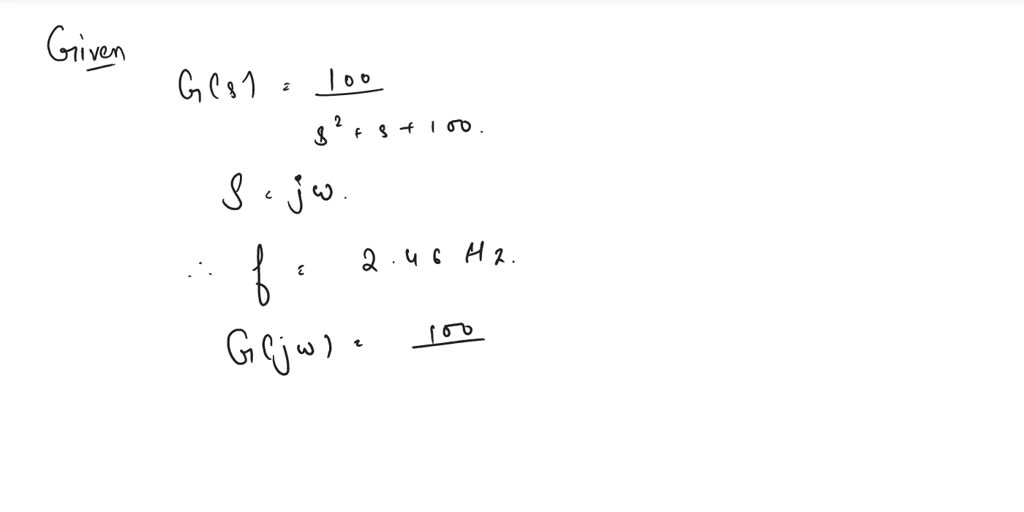 Given
G(s) = 100 / s² + s + 100.
S = jω.
∴ f = 2.46 Hz.
G(jω) = 100